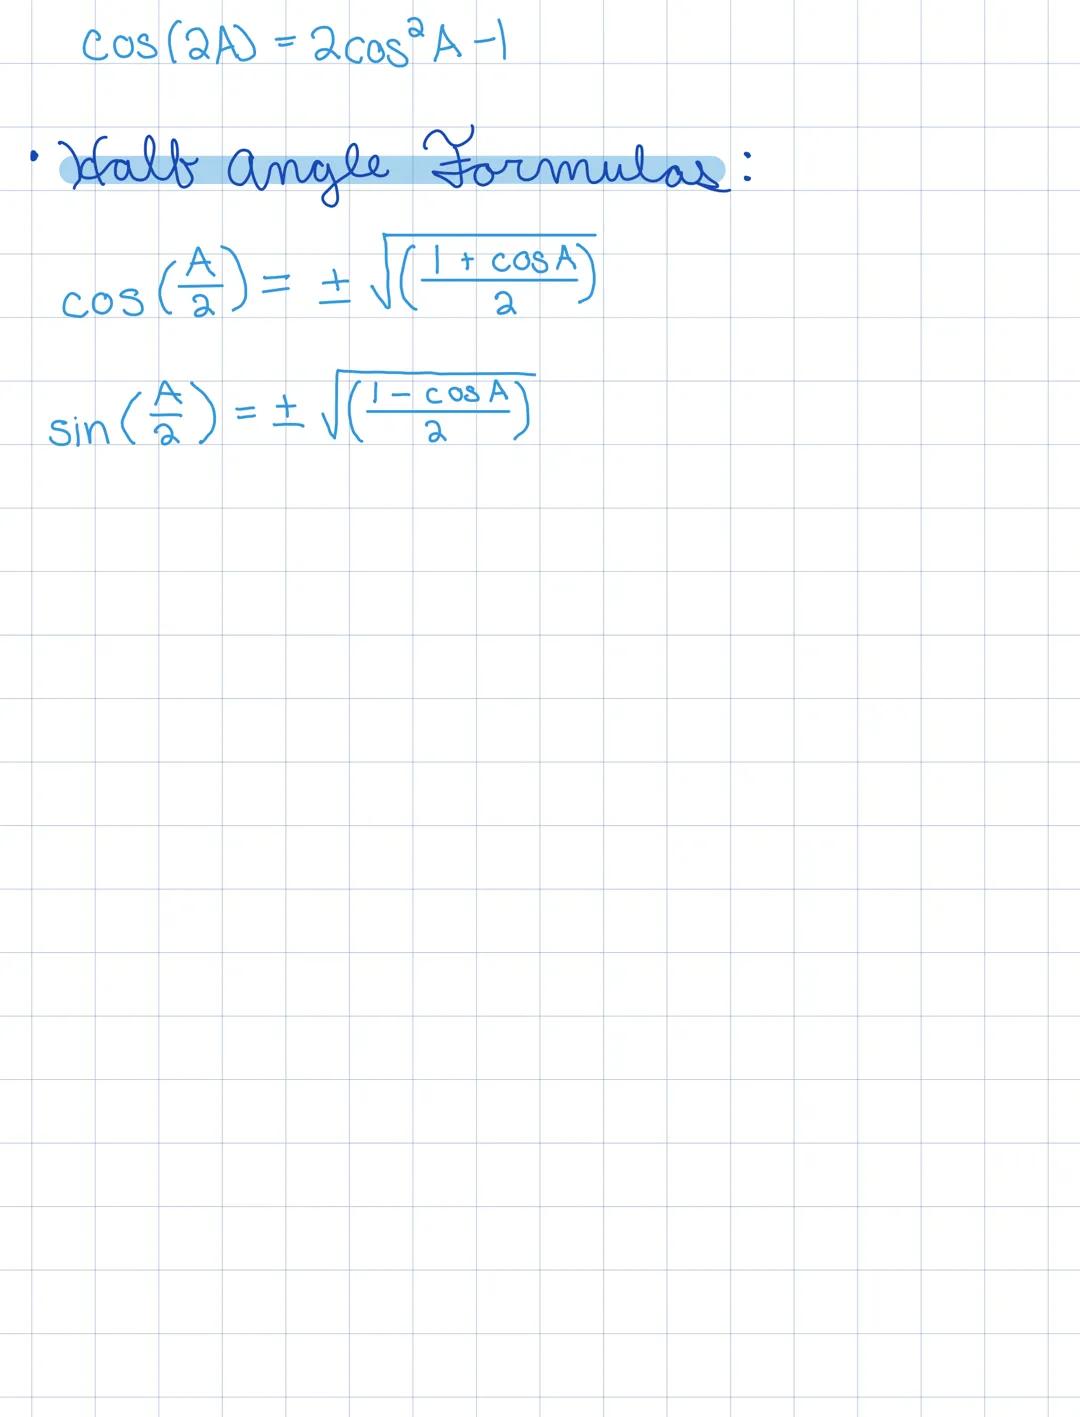 cos(2A) = 2cos²A -1
• Half angle Formulas:
cos(A/2) = ± √((1 + cosA)/2)
sin(A/2) = ± √((1 - cosA)/2)